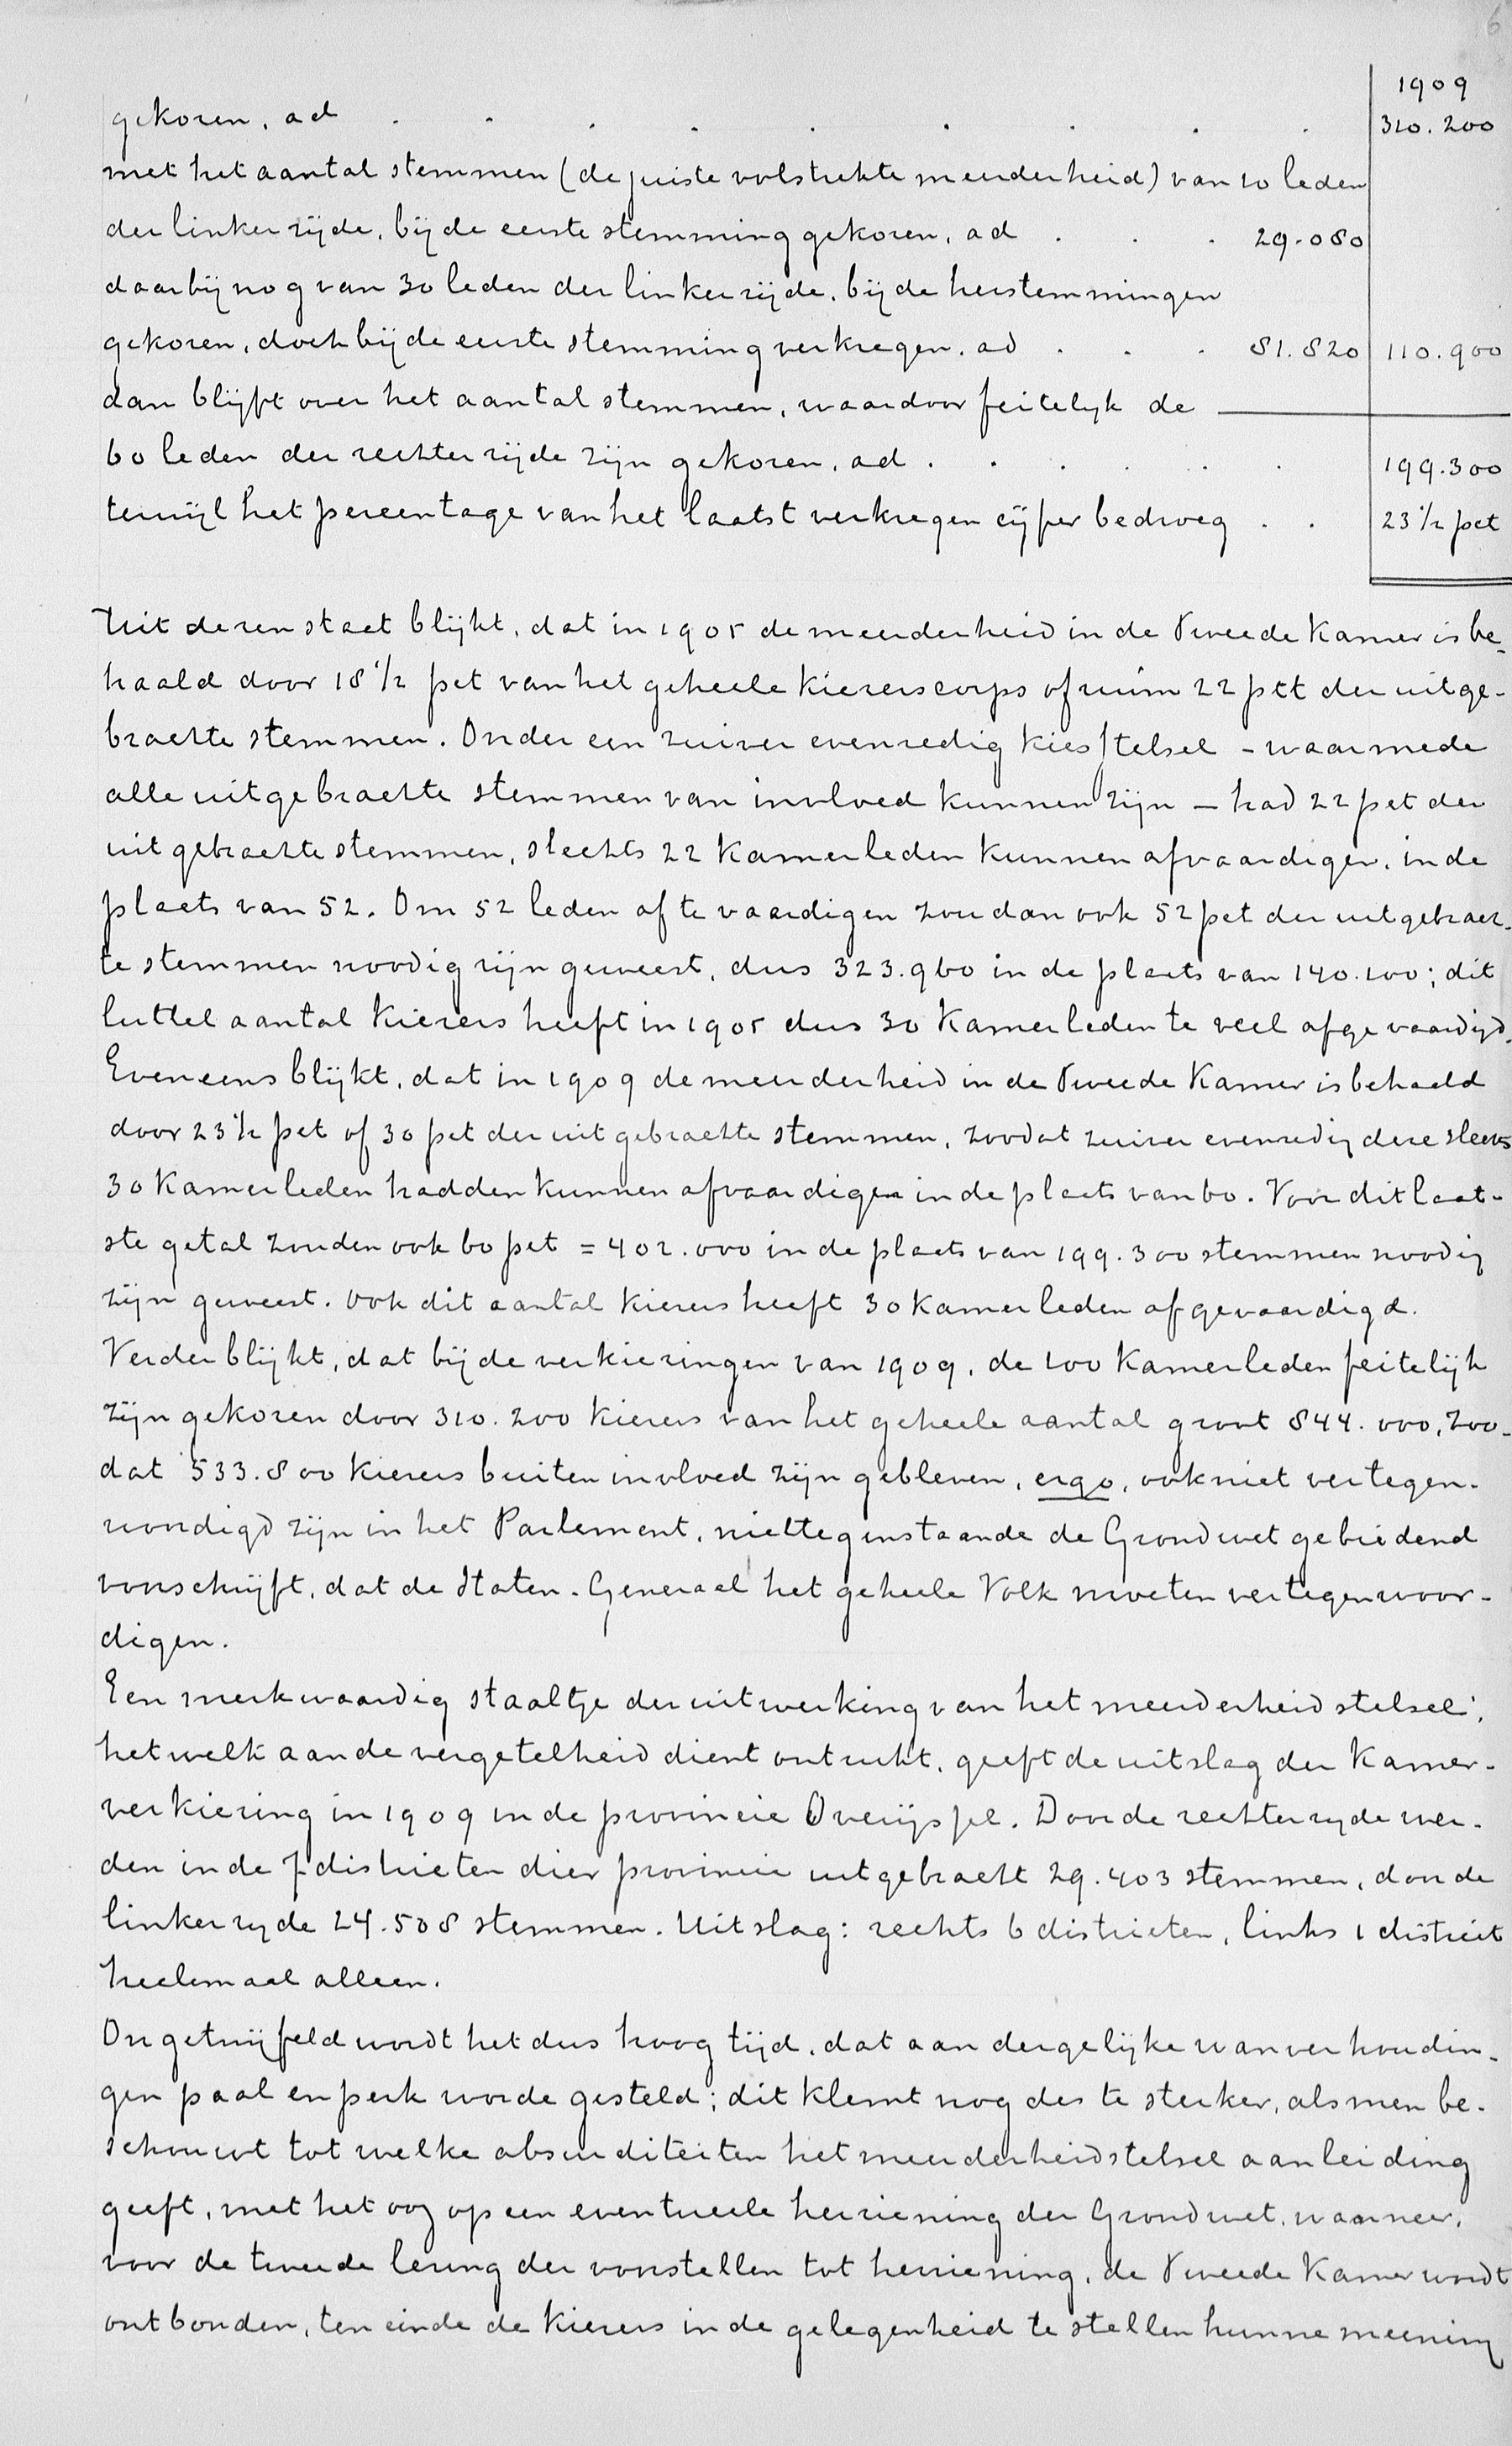 6
1909
gekozen, ad . . . . . . . . . 310.200
met het aantal stemmen (de juiste volstrekte meerderheid) van 10 leden
der linkerzijde, bij de eerste stemming gekozen, ad . . . 29.080
daarbij nog van 30 leden der linkerzijde, bij de herstemmingen
gekozen, doch bij de eerste stemming verkregen, ad . . . 81.820 110.900
dan blijft over het aantal stemmen, waardoor feitelijk de
60 leden der rechterzijde zijn gekozen, ad . . . . . . 199.300
terwijl het percentage van het laatst verkregen cijfer bedroeg . . 23 1/2 pct
Uit dezen staat blijkt, dat in 1905 de meerderheid in de Tweede Kamer is be-
haald door 18 1/2 pct van het geheele kiezerscorps of ruim 22 pct der uitge-
brachte stemmen. Onder een zuiver evenredig kiesstelsel - waarmede
alle uitgebrachte stemmen van invloed kunnen zijn - had 22 pct der
uitgebrachte stemmen, slechts 22 Kamerleden kunnen afvaardigen, in de
plaats van 52. Om 52 leden af te vaardigen zou dan ook 52 pct der uitgebrach-
te stemmen noodig zijn geweest, dus 323.960 in de plaats van 140.100; dit
luttel aantal kiezers heeft in 1905 dus 30 Kamerleden te veel afgevaardigd.
Eveneens blijkt, dat in 1909 de meerderheid in de Tweede Kamer is behaald
door 23 1/2 pct of 30 pct der uitgebrachte stemmen, zoodat zuiver evenredig deze slechts
30 Kamerleden hadden kunnen afvaardigen in de plaats van 60. Voor dit laat-
ste getal zouden ook 60 pct = 402.000 in de plaats van 199.300 stemmen noodig
zijn geweest. Ook dit aantal kiezers heeft 30 Kamerleden afgevaardigd.
Verder blijkt, dat bij de verkiezingen van 1909, de 100 Kamerleden feitelijk
zijn gekozen door 310.200 kiezers van het geheele aantal groot 844.000, zoo-
dat 533.800 kiezers buiten invloed zijn gebleven, ergo, ook niet vertegen-
woordigd zijn in het Parlement, niettegenstaande de Grondwet gebiedend
voorschrijft, dat de Staten-Generaal het geheele Volk moeten vertegenwoor-
digen.
Een merkwaardig staaltje der uitwerking van het meerderheidstelsel,
hetwelk aan de vergetelheid dient ontrukt, geeft de uitslag der Kamer-
verkiezing in 1909 in de provincie Overijssel. Door de rechterzijde wer-
den in de 7 districten dier provincie uitgebracht 29.403 stemmen, door de
linkerzijde 24.508 stemmen. Uitslag: rechts 6 districten, links 1 district
heelemaal alleen.
Ongetwijfeld wordt het dus hoog tijd, dat aan dergelijke wanverhoudin-
gen paal en perk worde gesteld; dit klemt nog des te sterker, als men be-
schouwt tot welke absurditeiten het meerderheidstelsel aanleiding
geeft, met het oog op een eventueele herziening der Grondwet, wanneer,
voor de tweede lezing der voorstellen tot herziening, de Tweede Kamer wordt
ontbonden, ten einde de kiezers in de gelegenheid te stellen hunne meening